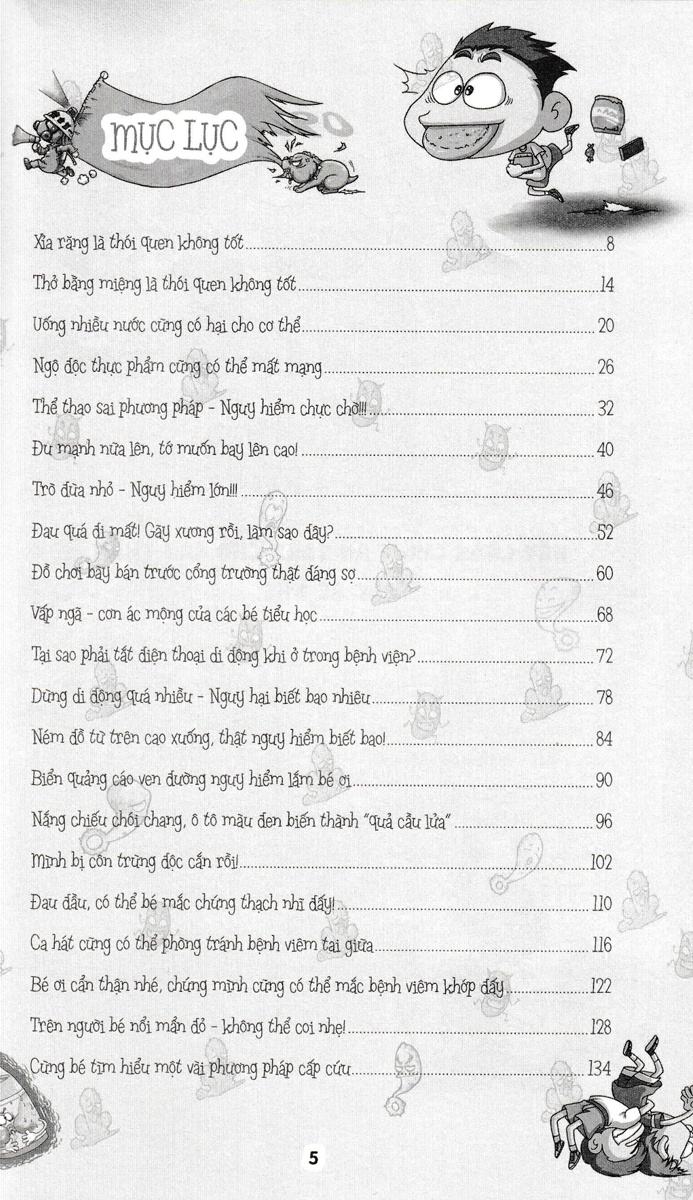 MỤC LỤC
Xỉa răng là thói quen không tốt........8
Thở bằng miệng là thói quen không tốt........14
Uống nhiều nước cũng có hại cho cơ thể........20
Ngộ độc thực phẩm cũng có thể mất mạng........26
Thể thao sai phương pháp - Nguy hiểm chực chờ!!!........32
Đu mạnh nữa lên, tớ muốn bay lên cao!........40
Trò đùa nhỏ - Nguy hiểm lớn!!!........46
Đau quá đi mất! Gãy xương rồi, làm sao đây?........52
Đồ chơi bày bán trước cổng trường thật đáng sợ........60
Vấp ngã - cơn ác mộng của các bé tiểu học........68
Tại sao phải tắt điện thoại di động khi ở trong bệnh viện?........72
Dùng di động quá nhiều - Nguy hại biết bao nhiêu........78
Ném đồ từ trên cao xuống, thật nguy hiểm biết bao!........84
Biển quảng cáo ven đường nguy hiểm lắm bé ơi........90
Nắng chiếu chói chang, ô tô màu đen biến thành "quả cầu lửa"........96
Mình bị côn trùng độc cắn rồi!........102
Đau đầu, có thể bé mắc chứng thạch nhĩ đấy!........110
Ca hát cũng có thể phòng tránh bệnh viêm tai giữa........116
Bé ơi cẩn thận nhé, chúng mình cũng có thể mắc bệnh viêm khớp đấy........122
Trên người bé nổi mẩn đỏ - không thể coi nhẹ!........128
Cùng bé tìm hiểu một vài phương pháp cấp cứu........134
5